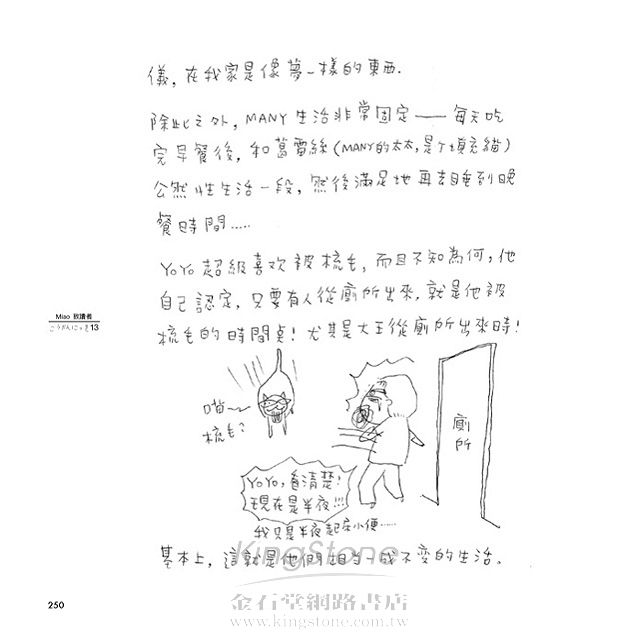 儀，在我家是像夢一樣的東西.
除此之外，MANY生活非常固定——每天吃
完早餐後，和葛雷絲(MANY的太太,是个填充貓)
公然性生活一段，然後滿足地再去睡到晚
餐時間.....
YoYo超級喜欢被梳毛，而且不知為何，他
自己認定，只要有人從廁所出來，就是他被
梳毛的時間点！尤其是大王從廁所出來時！
Miao 致讀者
こうがんにっき13
喵～
梳毛？
廁所
YoYo，看清楚！
現在是半夜!!!
我只是半夜起床小便......
基本上，這就是他們相当一成不变的生活。
KingStone
250
金石堂網路書店
www.kingstone.com.tw